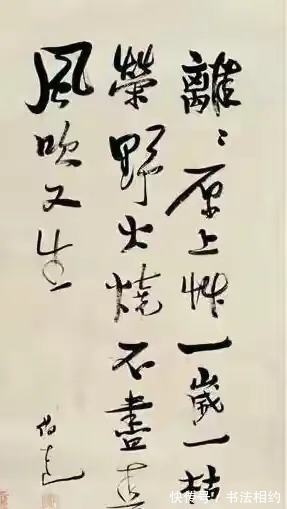 離〻原上草一歲一枯
榮野火燒不盡春
風吹又生
伯远
快传号/书法相约